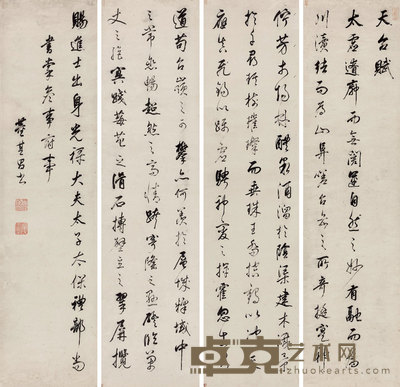 天台賦
太虛遼廓而無閡運自然之妙有融而為
川瀆結而為山阜嗟台岳之所奇挺寔
佇芳於陽林醴泉涌溜於陰渠建木滅景
於千尋琪樹璀璨而垂珠王喬控鶴以沖天
應真飛錫以躡虛騁神變之揮霍忽出
道苟台嶺之可攀亦何羨於層城釋域中
之常戀暢超然之高情跨穹隆之懸磴臨萬
丈之絕冥踐莓苔之滑石搏壁立之翠屏攬
賜進士出身光祿大夫太子太保禮部尚
書掌詹事府事
董其昌書